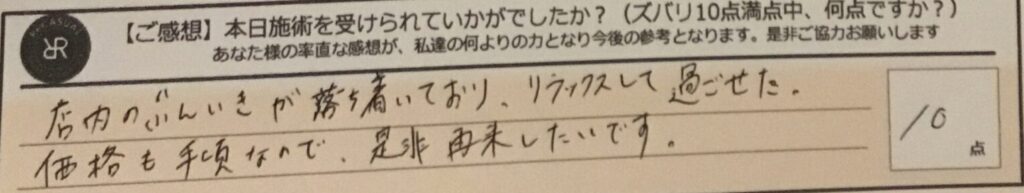 【ご感想】本日施術を受けられていかがでしたか？（ズバリ10点満点中、何点ですか？）
あなた様の率直な感想が、私達の何よりの力となり今後の参考となります。是非ご協力お願いします
店内のふんいきが落ち着いており、リラックスして過ごせた。
価格も手頃なので、是非再来したいです。
10
点